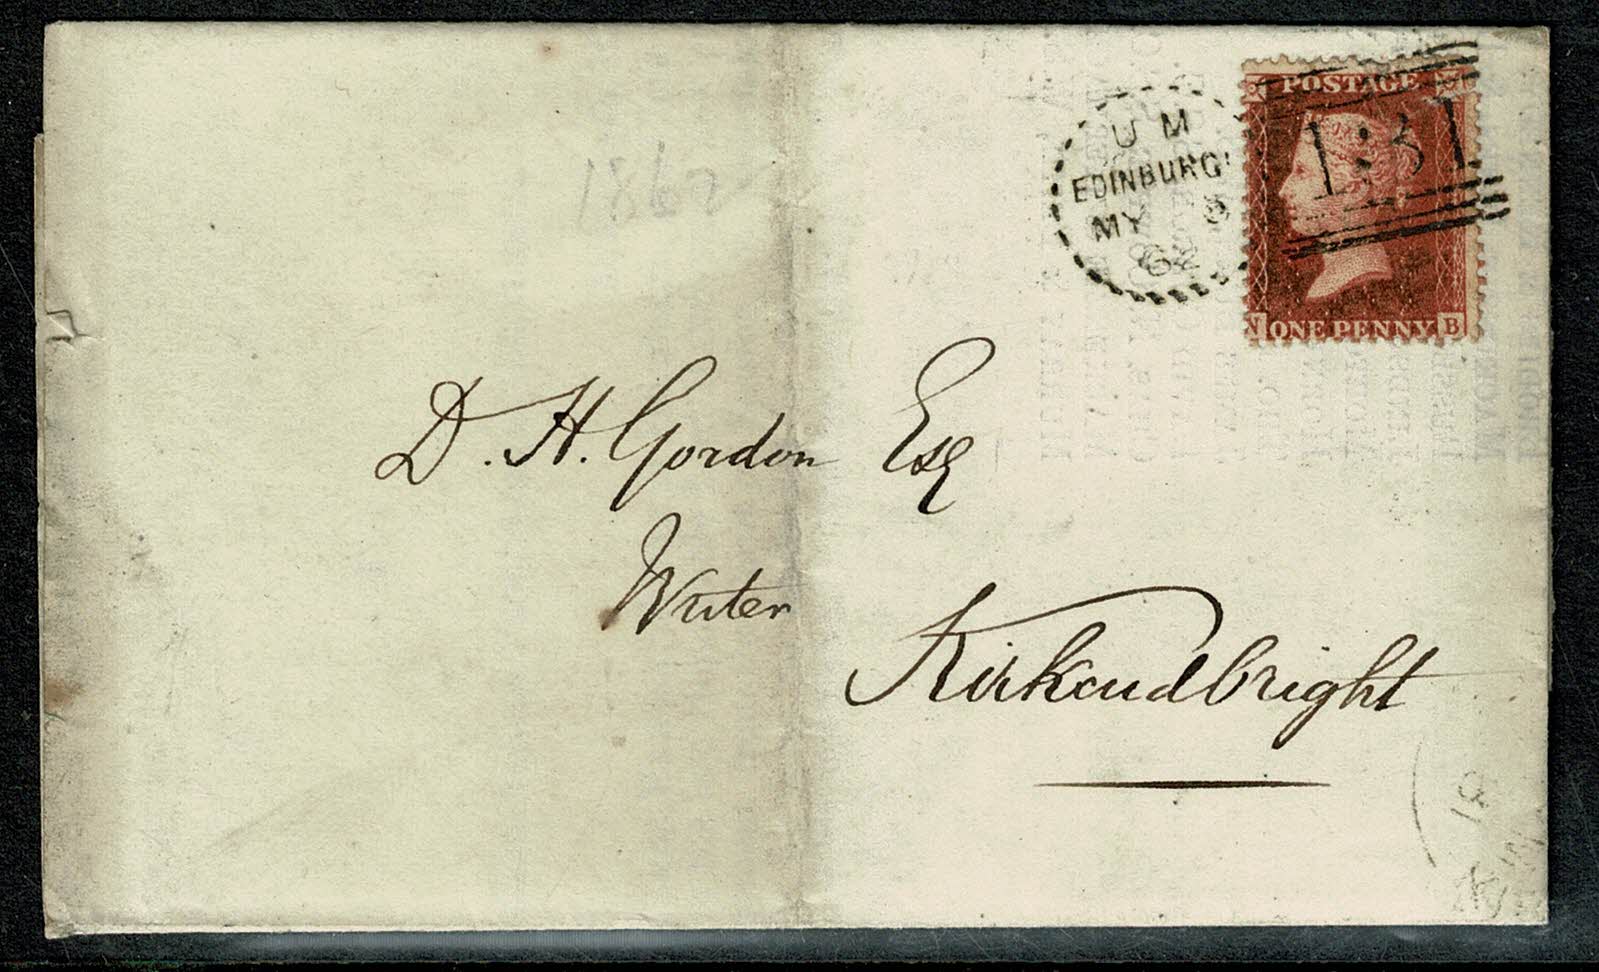 1862
U M
EDINBURG
MY 3
62
POSTAGE
131
N ONE PENNY B
D. H. Gordon Esq
Writer
Kirkcudbright